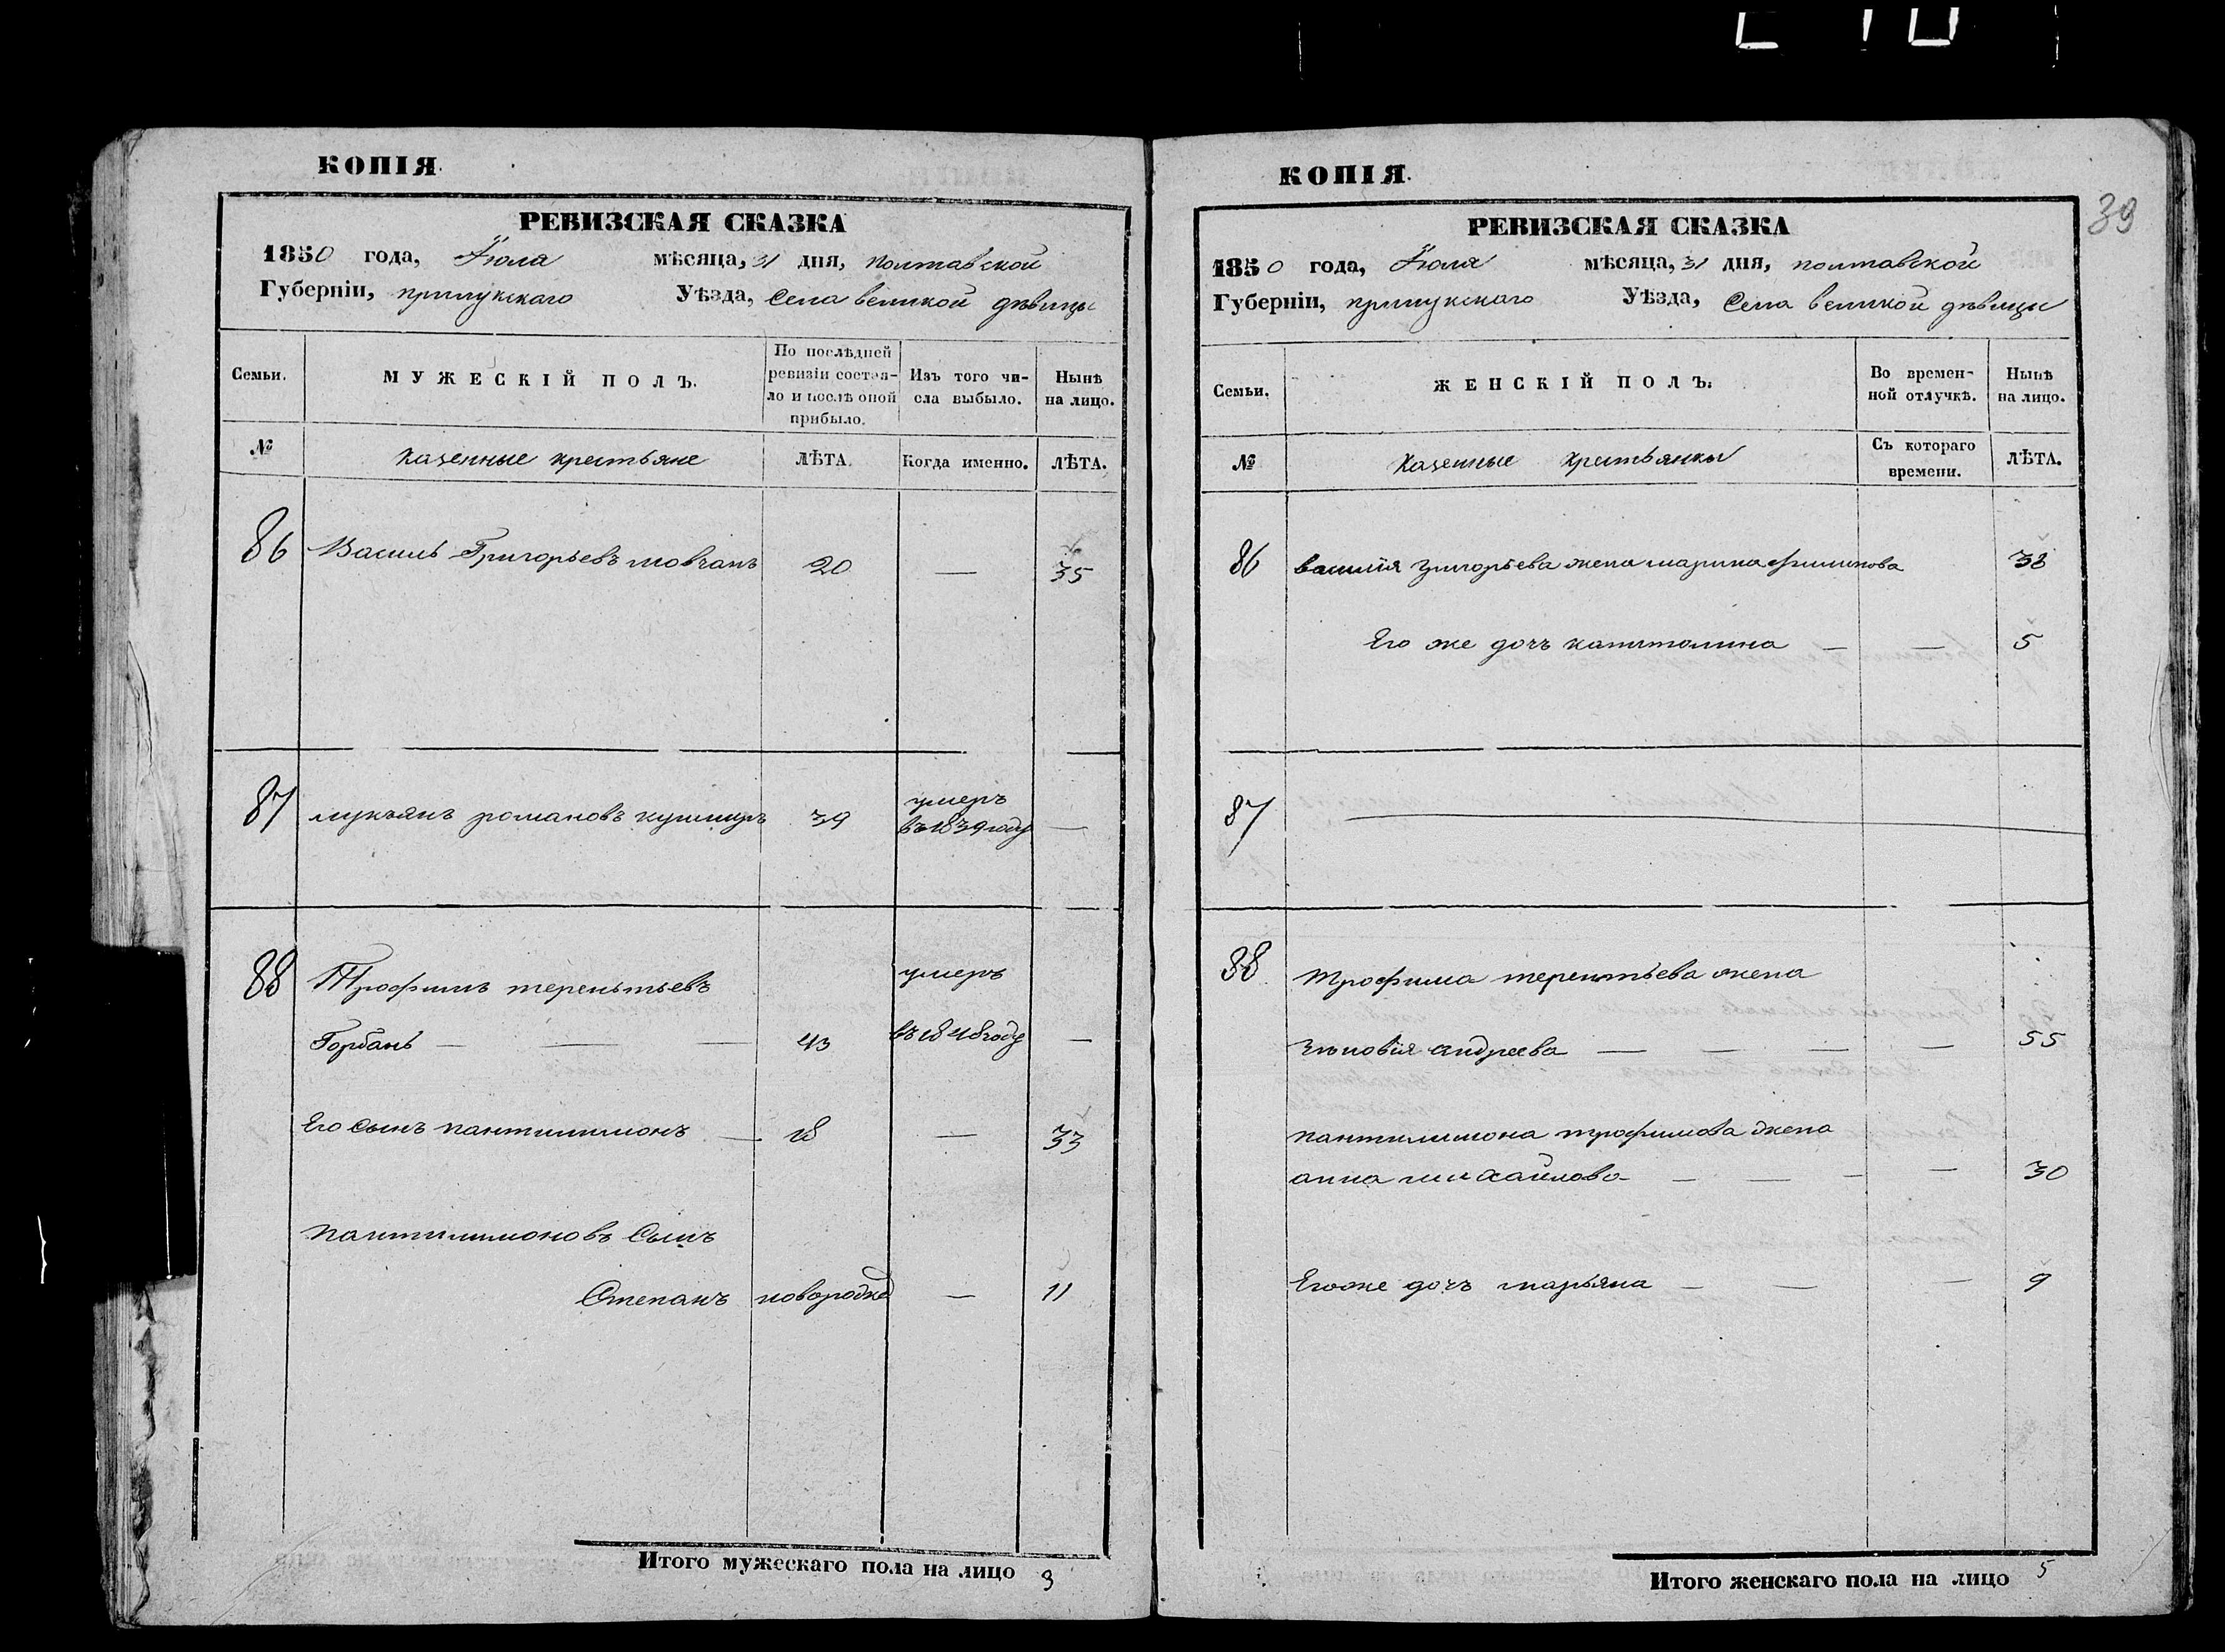 КОПІЯ.
РЕВИЗСКАЯ СКАЗКА
1850 года, Іюля мѣсяца, 31 дня, полтавской
Губерніи, прилукскаго Уѣзда, Села великой дѣвицы
Семьи.
МУЖЕСКІЙ ПОЛЪ.
По послѣдней ревизіи состоя-ло и послѣ оной прибыло.
Изъ того чи-сла выбыло.
Нынѣ на лицо.
№
Казенные крестьяне
ЛѢТА.
Когда именно.
ЛѢТА.
86 Василь Григорьевъ мовчанъ 20 — 35
87 лукъянъ романовъ кушниръ 39 умеръ въ 1839 году —
88 Трофимъ терентьевъ умеръ
Горбань — — — 43 въ 1848 году —
Его сынъ пантилимонъ — 18 — 33
пантилимоновъ сынъ
Степанъ новорожд — 11
Итого мужескаго пола на лицо 3
КОПІЯ.
39
РЕВИЗСКАЯ СКАЗКА
1850 года, Іюля мѣсяца, 31 дня, полтавской
Губерніи, прилукскаго Уѣзда, Села великой дѣвицы
Семьи.
ЖЕНСКІЙ ПОЛЪ.
Во времен-ной отлучкѣ.
Нынѣ на лицо.
№
Казенные крестьянки
Съ котораго времени.
ЛѢТА.
86 василія григорьева жена марина филипова 38
Его же дочъ капитолина — — 5
87
88 трофима терентьева жена
зѣновія андреева — — — — 55
пантилимона трофимова жена
анна михайлова — — — — 30
Его же дочъ марьяна — — — 9
Итого женскаго пола на лицо 5